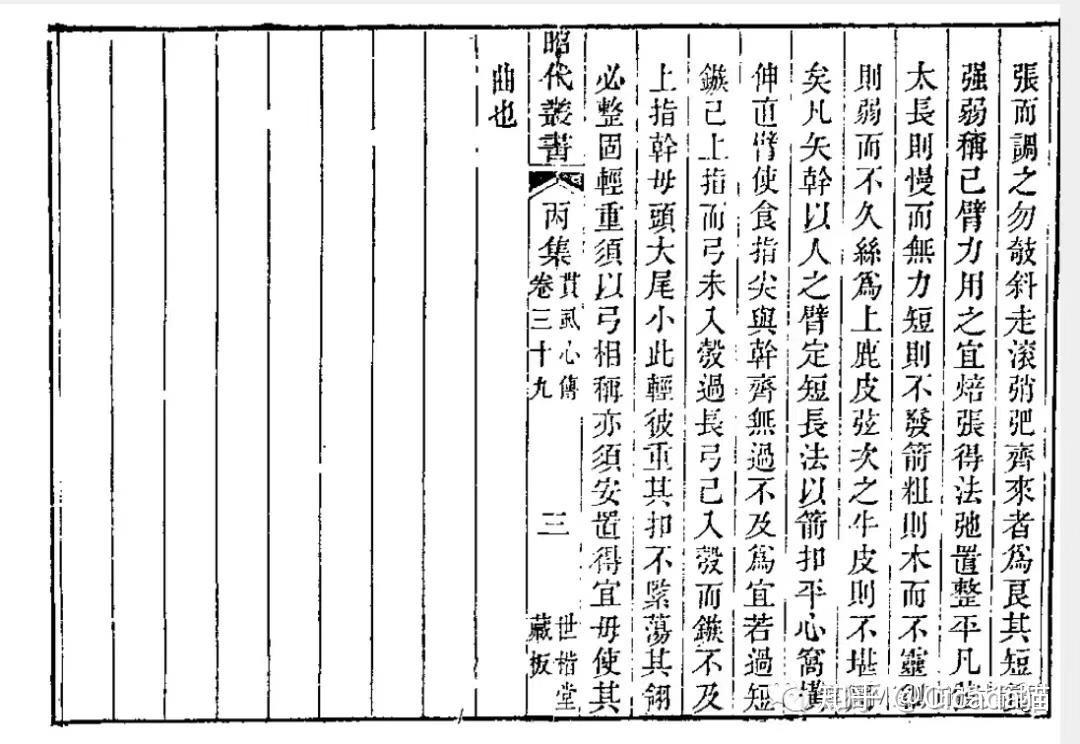 張而調之勿敧斜走滚弰弝齊來者爲良其短長
强弱稱己臂力用之宜焙張得法弛置整平凡弦
太長則慢而無力短則不發箭粗則木而不靈細
則弱而不久絲爲上鹿皮弦次之牛皮則不堪用
矣凡矢幹以人之臂定短長法以箭扣平心窩搆
伸直臂使食指尖與幹齊無過不及爲宜若過短
鏃已上指而弓未入彀過長弓已入彀而鏃不及
上指幹毋頭大尾小此輕彼重其扣不緊蕩其翎
必整固輕重須以弓相稱亦須安置得宜毋使其
昭代叢書
丙集
貫虱心傳
卷三十九
三
世楷堂
藏板
曲也
知乎